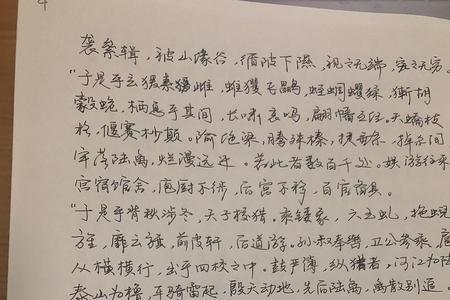 袭絫辑，被山缘谷，循阪下隰，视之无端，究之无穷。
"于是乎玄猨素雌，蜼玃飞鸓，蛭蜩蠼猱，獑胡
豰蛫，栖息乎其间，长啸哀鸣，翩幡互经。夭蟜枝
格，偃蹇杪颠。隃绝梁，腾殊榛，捷垂条，掉希间
牢落陆离，烂漫远迁。若此者数百千处。娱游往来
宫宿馆舍，庖厨不徙，后宫不移，百官备具。
"于是乎背秋涉冬，天子校猎。乘镂象，六玉虬，拖蜺
旌，靡云旗，前皮轩，后道游。孙叔奉辔，卫公参乘，扈
从横行，出乎四校之中。鼓严簿，纵猎者，河江为阹
泰山为橹，车骑雷起，殷天动地，先后陆离，离散别追